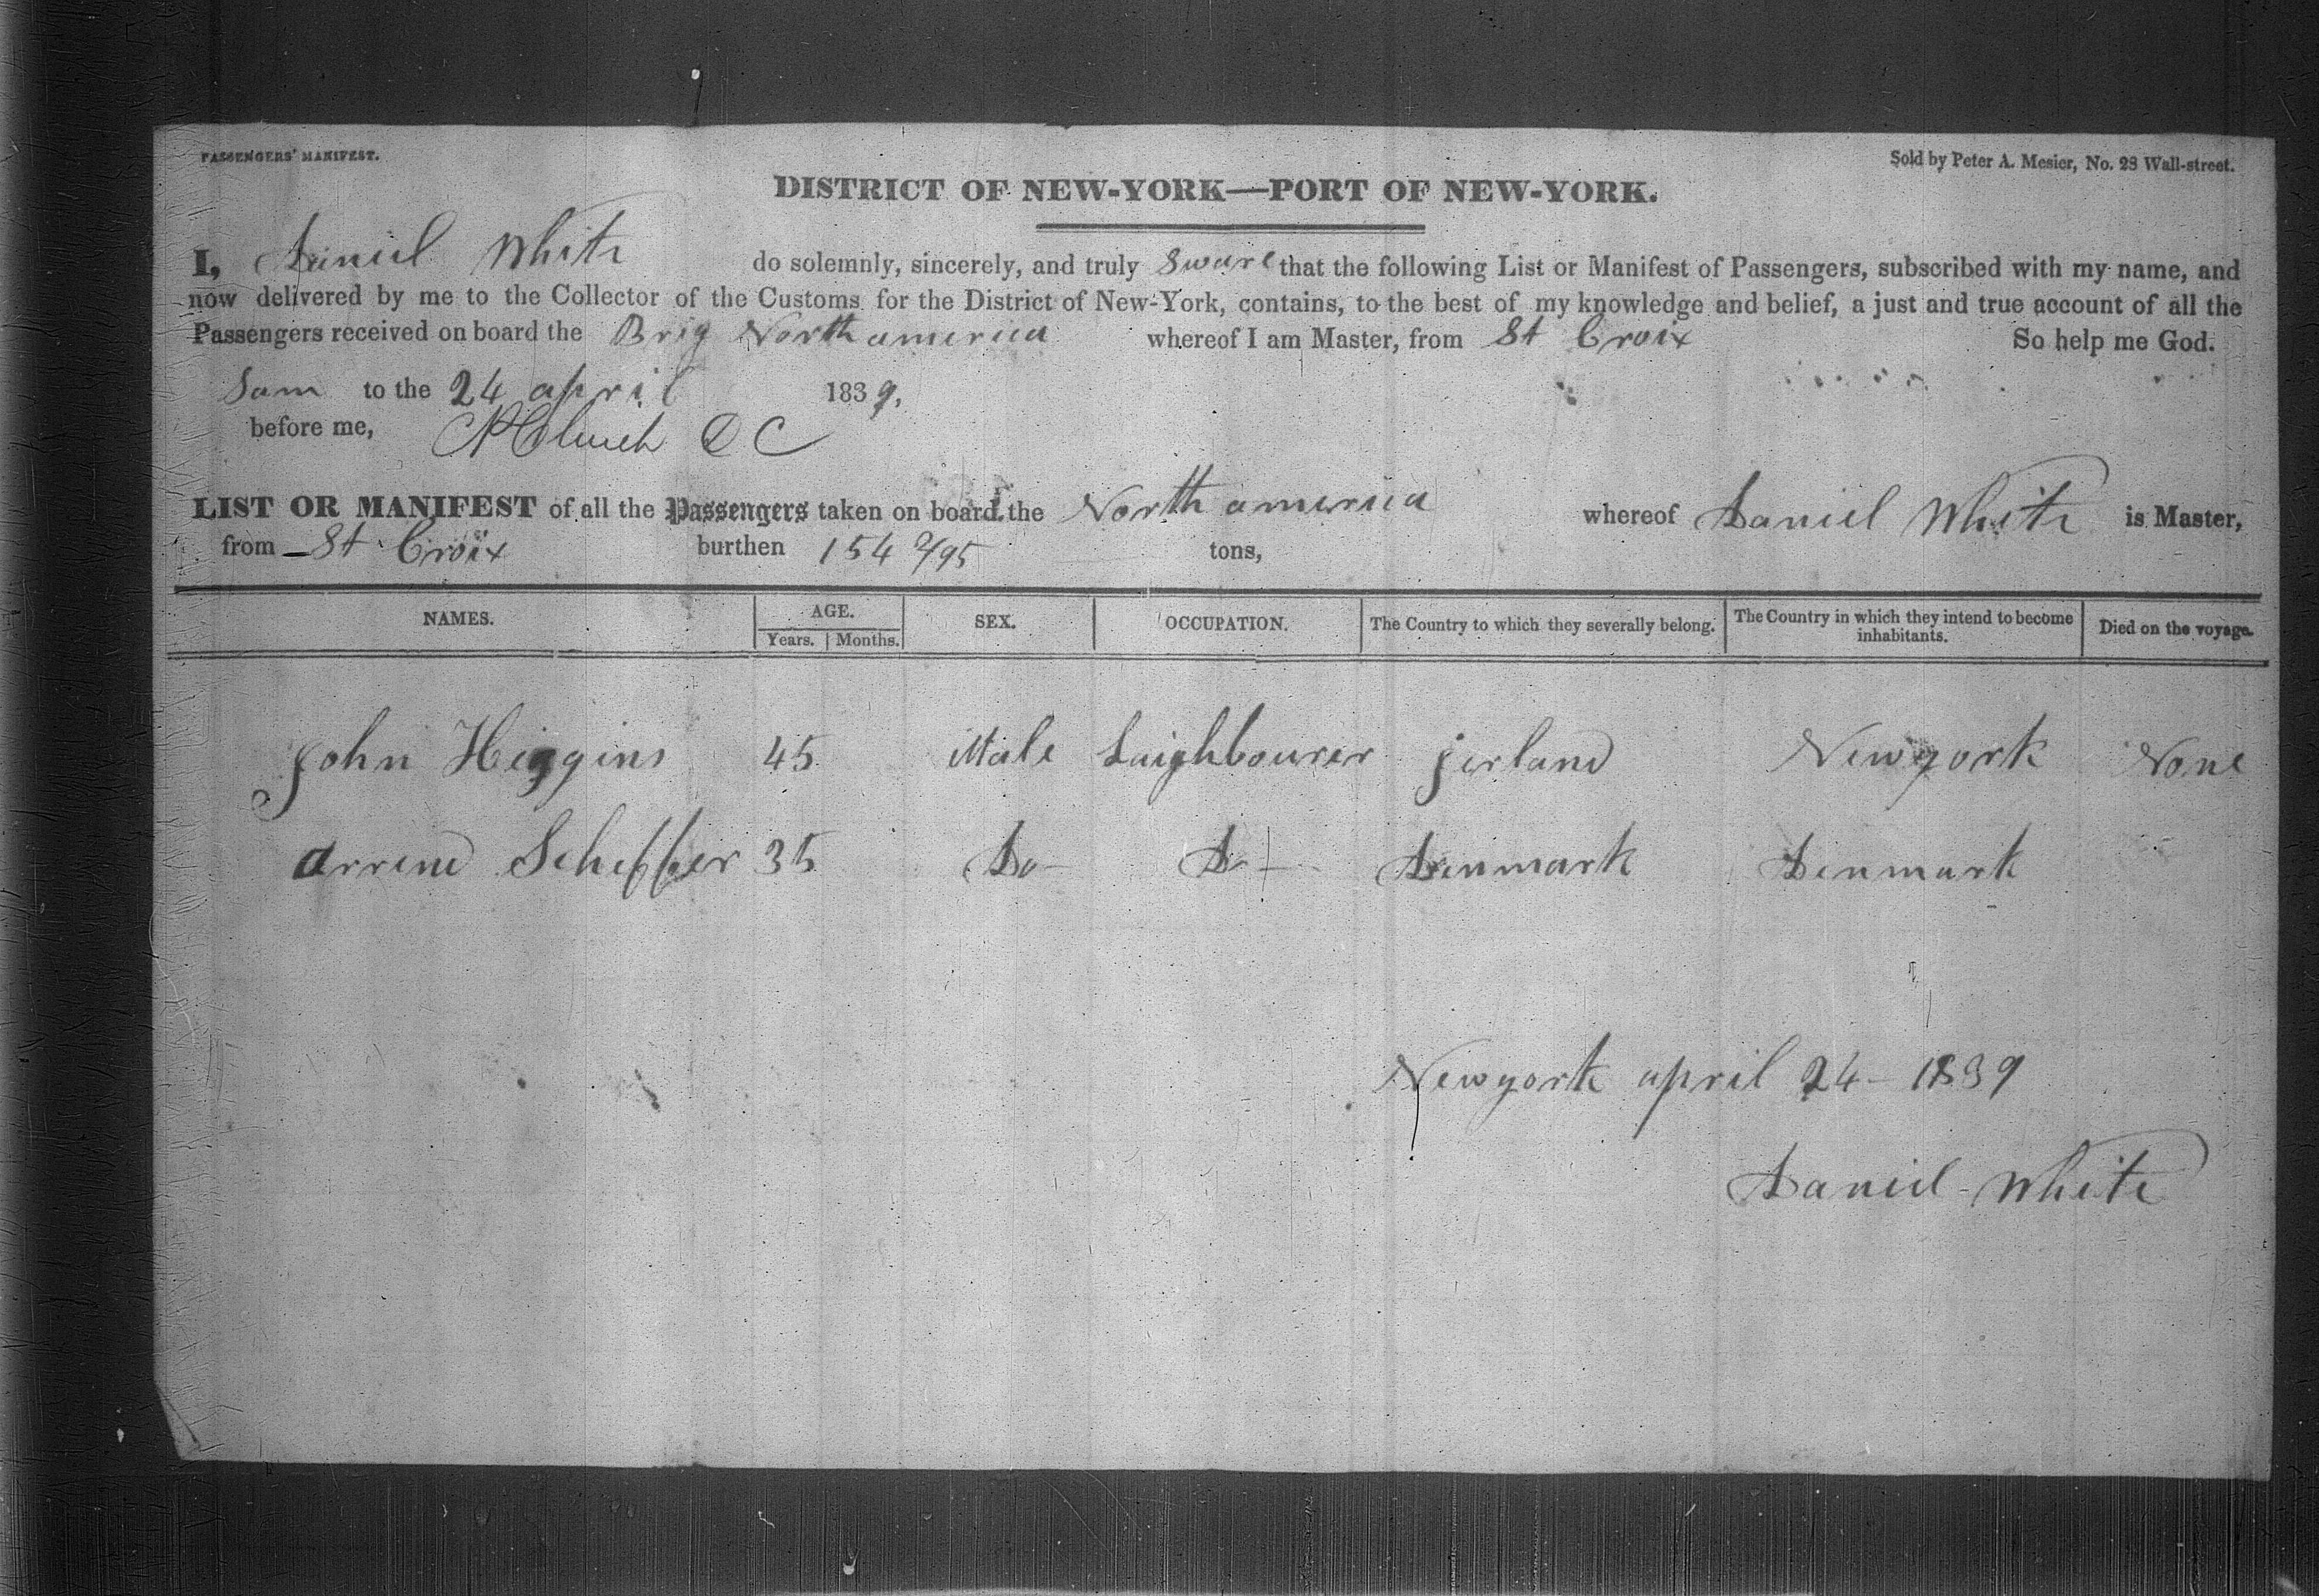 PASSENGERS' MANIFEST.
Sold by Peter A. Mesier, No. 28 Wall-street.
DISTRICT OF NEW-YORK—PORT OF NEW-YORK.
I, Daniel White do solemnly, sincerely, and truly Sware that the following List or Manifest of Passengers, subscribed with my name, and
now delivered by me to the Collector of the Customs for the District of New-York, contains, to the best of my knowledge and belief, a just and true account of all the
Passengers received on board the Brig North america whereof I am Master, from St Croix So help me God.
to the 24 april 1839,
before me, D C
LIST OR MANIFEST of all the Passengers taken on board the North america whereof Daniel White is Master,
from St Croix burthen 154 2/95 tons,
NAMES. AGE. SEX. OCCUPATION. The Country to which they severally belong. The Country in which they intend to become inhabitants. Died on the voyage.
Years. Months.
John Higgins 45 Male Laighbourer jerland Newyork None
arrend Scheffer 35 Do- Do- Denmark Denmark
Newyork april 24 - 1839
Daniel White